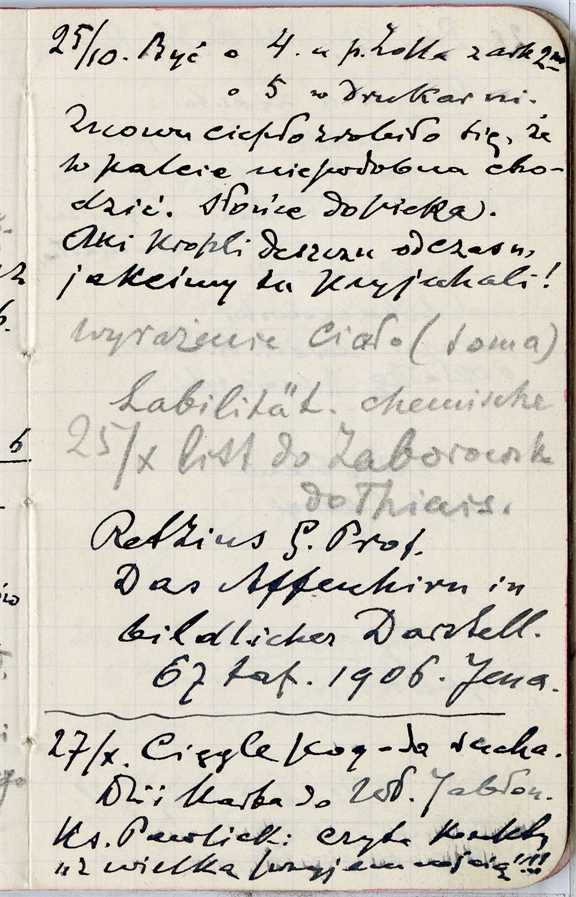 25/10. Być o 4. u p. Zolla zach
o 5 w Drukarni.
Znowu ciepło zrobiło się, że
w palcie niepodobna cho-
dzić. Słońce dopieka).
Ani kropli deszczu odczasu,
jakeśmy tu przyjechali!
wyrażenie Ciało (soma)
Labilität. chemische
25/X list do Zaborowsk
do Thiais.
Retzius G. Prof.
Das Affenhirn in
bildlicher Darstell.
67 taf. 1906. Jena.
27/X. Ciągle pog-da sucha.
Dziś kartka do Jabłon.
Ks. Pawlicki: czyta
"z wielką przyjemnością"!!!
6